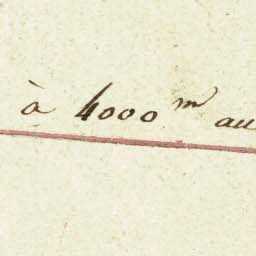 à 4000 m au